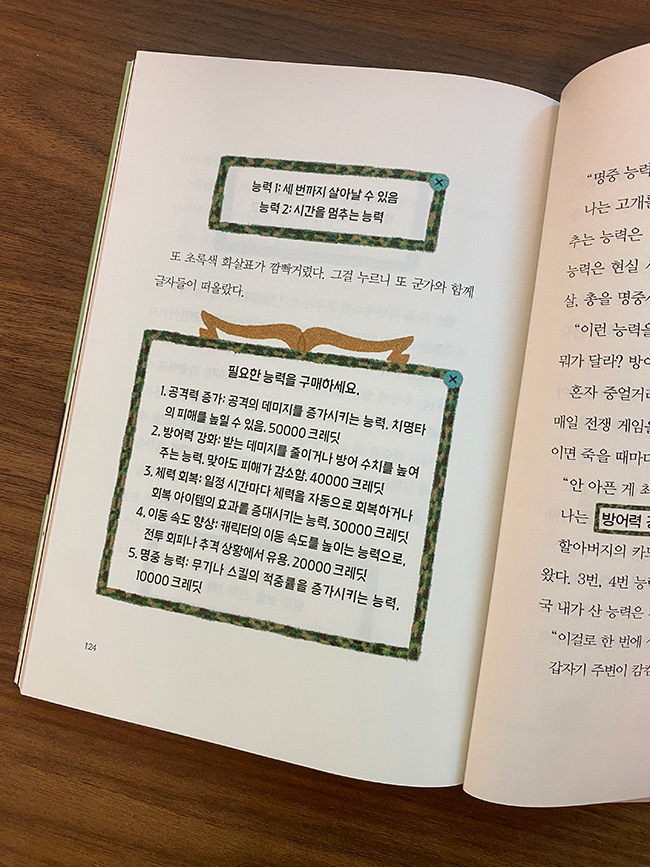 능력 1: 세 번까지 살아날 수 있음
능력 2: 시간을 멈추는 능력
또 초록색 화살표가 깜빡거렸다. 그걸 누르니 또 군가와 함께
글자들이 떠올랐다.
필요한 능력을 구매하세요.
1. 공격력 증가: 공격의 데미지를 증가시키는 능력. 치명타
의 피해를 높힐 수 있음. 50000 크레딧
2. 방어력 강화: 받는 데미지를 줄이거나 방어 수치를 높여
주는 능력. 맞아도 피해가 감소함. 40000 크레딧
3. 체력 회복: 일정 시간마다 체력을 자동으로 회복하거나
회복 아이템의 효과를 증대시키는 능력. 30000 크레딧
4. 이동 속도 향상: 캐릭터의 이동 속도를 높이는 능력으로,
전투 회피나 추격 상황에서 유용. 20000 크레딧
5. 명중 능력: 무기나 스킬의 적중률을 증가시키는 능력.
10000 크레딧
124
“명중 능력
나는 고개를
추는 능력은
능력은 현실
살, 총을 명중
“이런 능력을
뭐가 달라? 방어
혼자 중얼거
매일 전쟁 게임을
이면 죽을 때마다
“안 아픈 게 최
나는 방어력 강
할아버지의 카드
왔다. 3번, 4번 능
국 내가 산 능력은
“이걸로 한 번에
갑자기 주변이 캄캄